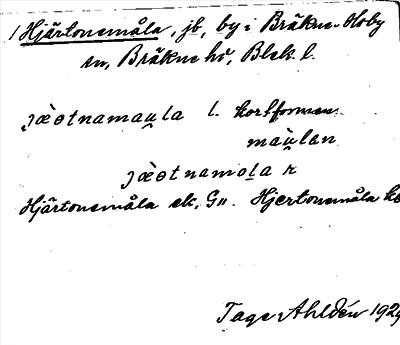 1 Hjärtonemåla, jb, by i Bräkne-Hoby
sn, Bräkne hd, Blek. l.
jæ̀ɵtnamau̯la l. kortformen
màu̯lan
jæ̀ɵtnamola r
Hjärtonemåla ek, Gu. Hjertonemåla
Tage Ahldén 1929